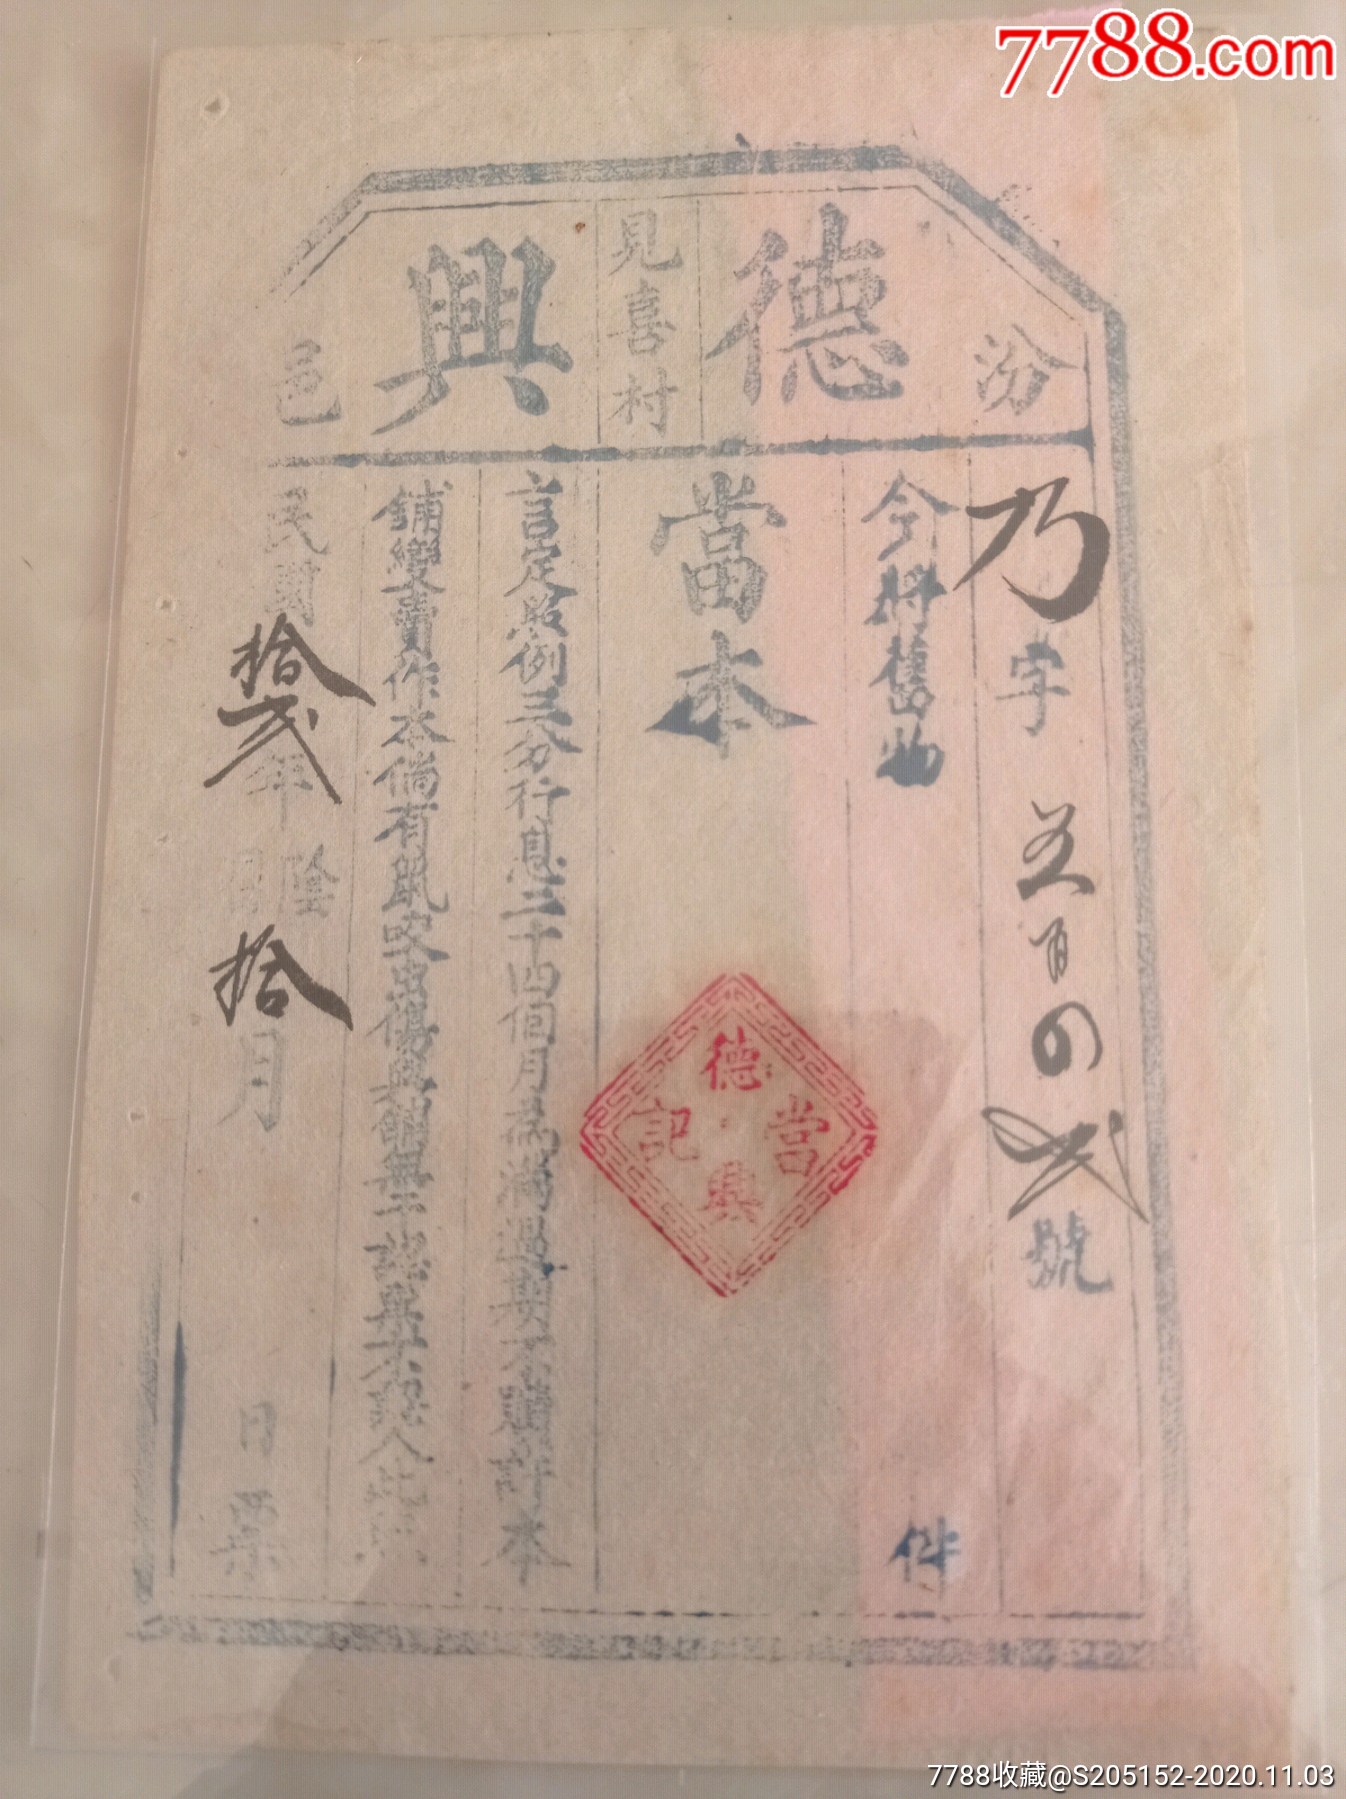 7788.com
汾 德 見喜村 興 邑
乃字 五百〇弍號
今將舊物 件
當本
言定照例三分行息二十四個月為滿過期不贖許本
鋪變賣作本倘有鼠咬虫傷與鋪無干認票不認人此
民國拾弍年陰曆拾月 日票
德興當記
7788收藏@S205152-2020.11.03